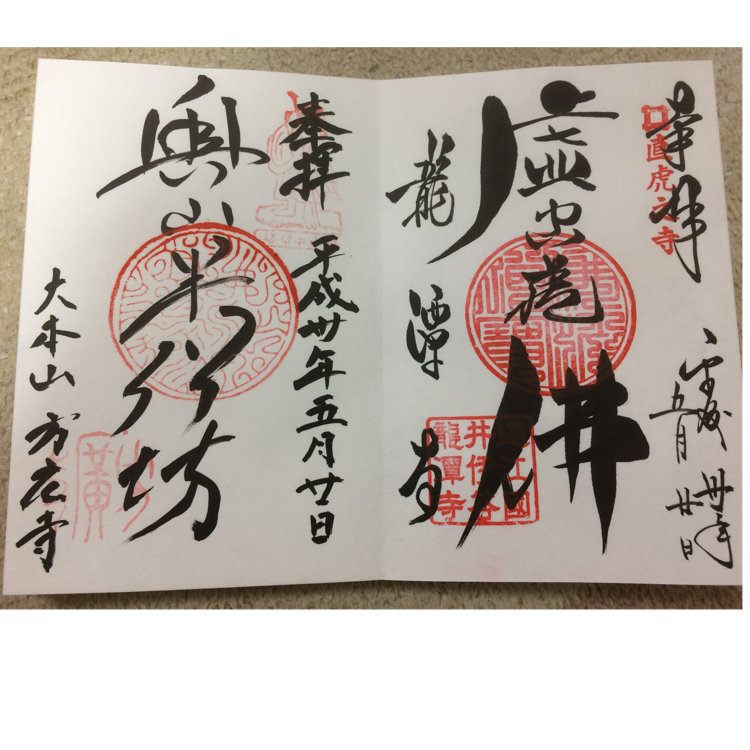 奉拝
直虎之寺
平成卅年
五月廿日
虚空蔵佛
遠江國
井伊谷
龍潭寺
龍潭寺
奉拝
平成卅年五月廿日
奥山半僧坊
大本山方広寺